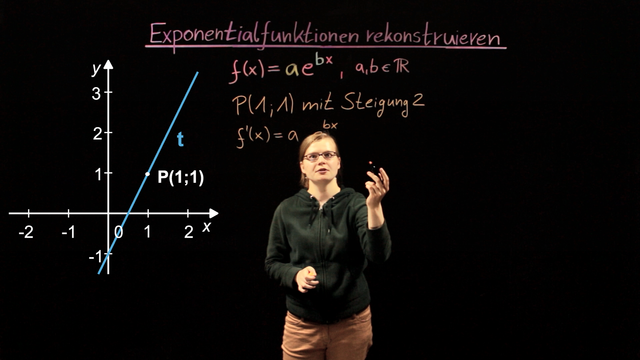 Exponentialfunktionen rekonstruieren
f(x) = a e^bx, a,b ∈ ℝ
P(1;1) mit Steigung 2
f'(x) = a bx
y
3
2
t
1
P(1;1)
-2 -1 0 1 2 x
-1